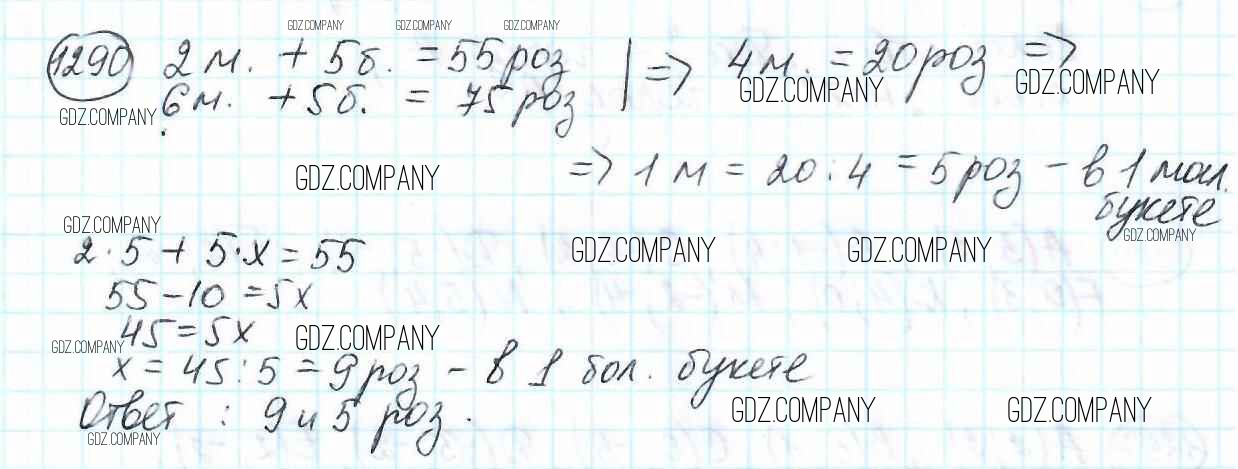 GDZ.COMPANY GDZ.COMPANY GDZ.COMPANY
1290 2 м. + 5 б. = 55 роз | => 4 м. = 20 роз =>
6 м. + 5 б. = 75 роз
GDZ.COMPANY GDZ.COMPANY GDZ.COMPANY
=> 1 м = 20 : 4 = 5 роз - в 1 мал.
букете
GDZ.COMPANY
GDZ.COMPANY GDZ.COMPANY
2 · 5 + 5 · x = 55
GDZ.COMPANY GDZ.COMPANY GDZ.COMPANY
55 - 10 = 5x
45 = 5x
GDZ.COMPANY GDZ.COMPANY
x = 45 : 5 = 9 роз - в 1 бол. букете
Ответ : 9 и 5 роз.
GDZ.COMPANY GDZ.COMPANY
GDZ.COMPANY